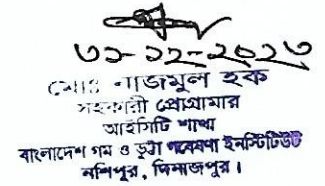 ৩১-১২-২০২৩
মোঃ নাজমুল হক
সহকারী প্রোগ্রামার
আইসিটি শাখা
বাংলাদেশ গম ও ভুট্টা গবেষণা ইনস্টিটিউট
নশিপুর, দিনাজপুর।